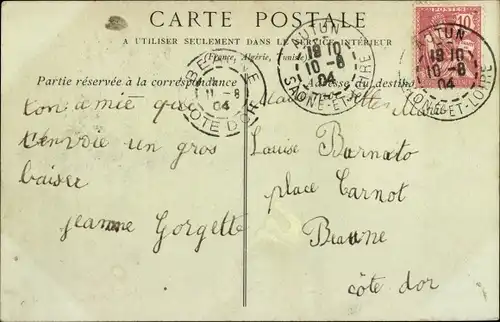 CARTE POSTALE
A UTILISER SEULEMENT DANS LE SERVICE INTÉRIEUR
(France, Algérie, Tunisie)
Partie réservée à la correspondance
ton amie qui
t'envoie un gros
baiser
jeanne Gorgette
Adresse du destin
Louise Barnato
place Carnot
Beaune
côte dor
AUTUN
19 10
10 - 8
04
SAONE-ET-LOIRE
AUTUN
19 10
10 - 8
04
SAONE-ET-LOIRE
11 - 8
04
COTE D'OR
POSTES
10